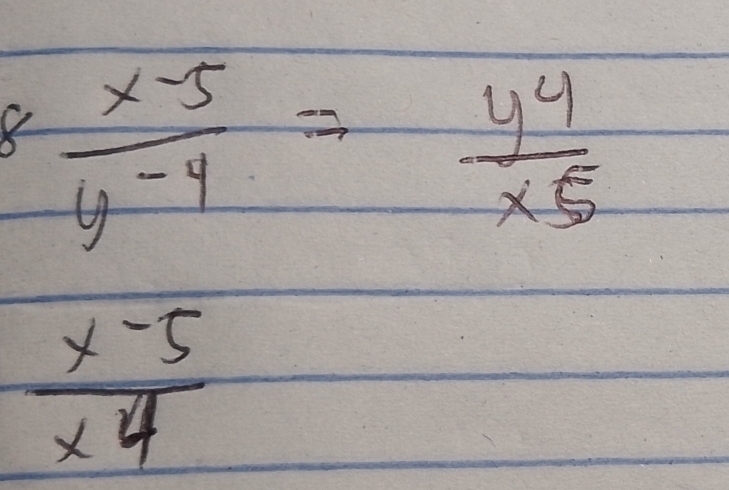 8 x^-5 / y^-4 = y^4 / x^5
x^-5 / x^4